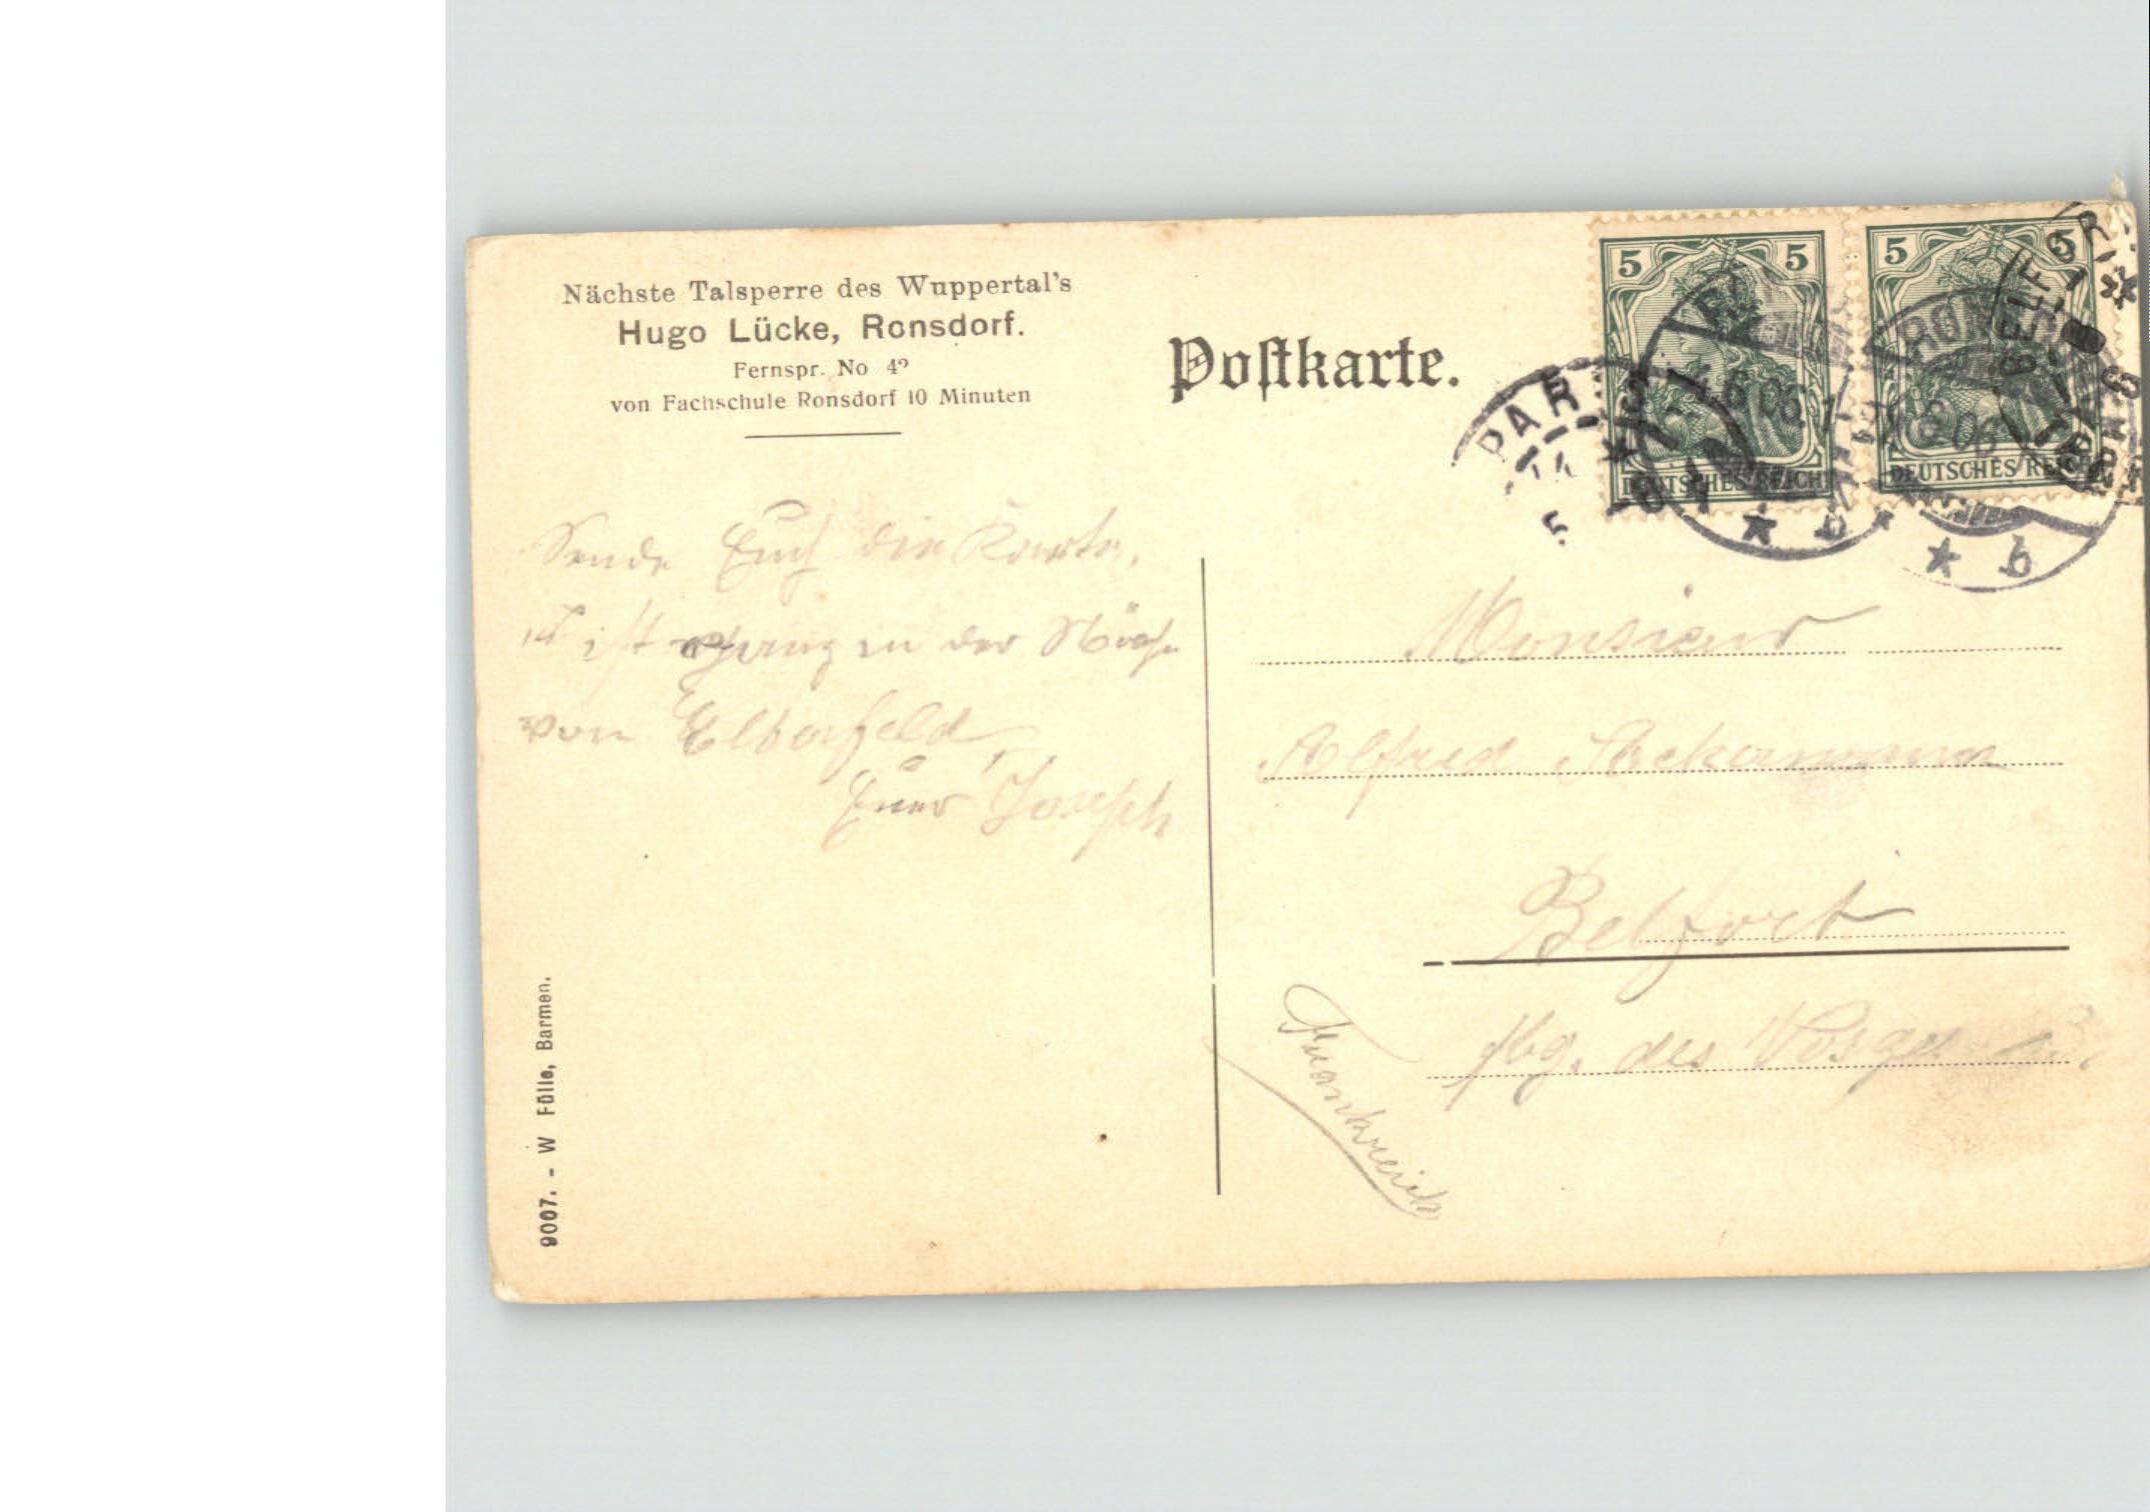 Nächste Talsperre des Wuppertal's
Hugo Lücke, Ronsdorf.
Fernspr. No 49
von Fachschule Ronsdorf 10 Minuten
Postkarte.
5 5
DEUTSCHES REICH
5 5
DEUTSCHES REICH
PARIS
RONSDORF
6.06
* b
BELFORT
* b
Sende Euch die Karte,
ist ganz in der Nähe
von Elberfeld,
Euer Joseph
Monsieur
Alfred Ackermann
Belfort
fbg. des Vosges
Frankreich
9007. - W Fülle, Barmen.